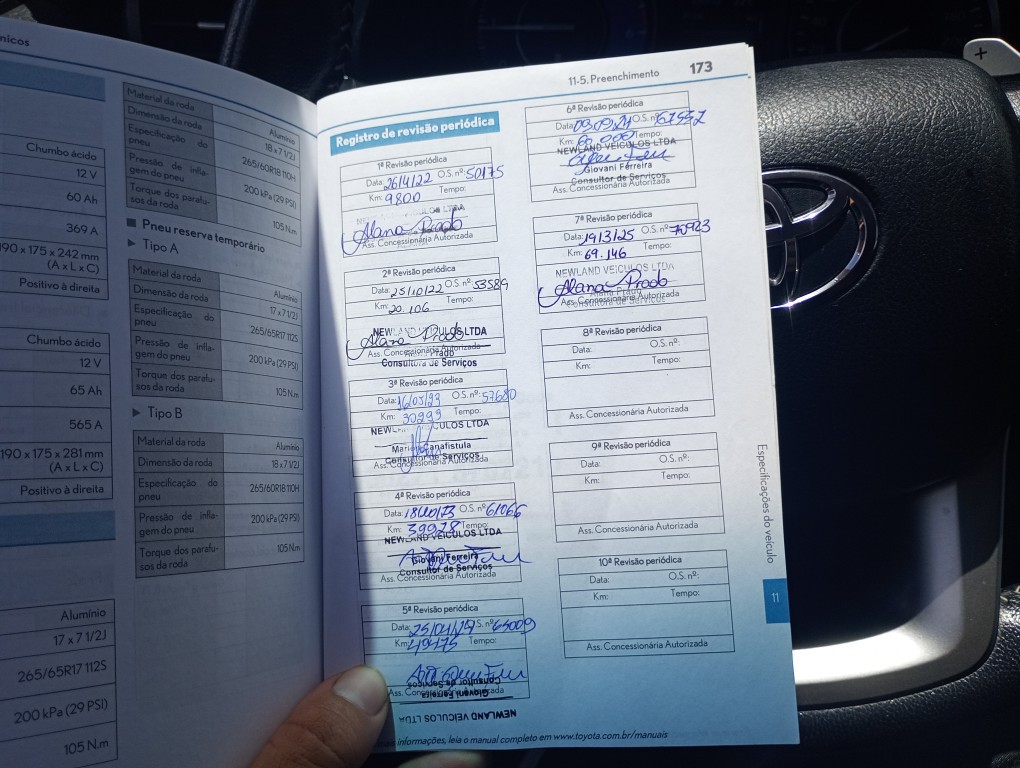 nicos
Chumbo ácido
12 V
60 Ah
369 A
190 x 175 x 242 mm
(A x L x C)
Positivo à direita
Chumbo ácido
12 V
65 Ah
565 A
190 x 175 x 281 mm
(A x L x C)
Positivo à direita
Alumínio
17 x 7 1/2J
265/65R17 112S
200 kPa (29 PSI)
105 N.m
Material da roda Alumínio
Dimensão da roda 18 x 7 1/2J
Especificação do pneu 265/60R18 110H
Pressão de infla-
gem do pneu 200 kPa (29 PSI)
Torque dos parafu-
sos da roda 105 N.m
Pneu reserva temporário
Tipo A
Material da roda Alumínio
Dimensão da roda 17 x 7 1/2J
Especificação do
pneu 265/65R17 112S
Pressão de infla-
gem do pneu 200 kPa (29 PSI)
Torque dos parafu-
sos da roda 105 N.m
Tipo B
Material da roda Alumínio
Dimensão da roda 18 x 7 1/2J
Especificação do
pneu 265/60R18 110H
Pressão de infla-
gem do pneu 200 kPa (29 PSI)
Torque dos parafu-
sos da roda 105 N.m
11-5. Preenchimento 173
Registro de revisão periódica
1ª Revisão periódica
Data: 26/4/22 O.S. nº: 50175
Km: 9800 Tempo:
Alana Prado
Ass. Concessionária Autorizada
2ª Revisão periódica
Data: 25/10/22 O.S. nº: 53589
Km: 20.106 Tempo:
NEWLAND VEÍCULOS LTDA
Alana Prado
Ass. Concessionária Autorizada
Prado
Consultora de Serviços
3ª Revisão periódica
Data: 16/05/23 O.S. nº: 57680
Km: 30293 Tempo:
Canafistula
Consultor de Serviços
Ass. Concessionária Autorizada
4ª Revisão periódica
Data: O.S. nº: 61066
Km: 39978 Tempo:
NEWLAND VEÍCULOS LTDA
Giovani Ferreira
Consultor de Serviços
Ass. Concessionária Autorizada
5ª Revisão periódica
Data: 25/04/24 O.S. nº: 65009
Km: 49475 Tempo:
Ass. Concessionária Autorizada
Consultor de Serviços
Giovani Ferreira
NEWLAND VEÍCULOS LTDA
6ª Revisão periódica
Data: O.S. nº:
Km: Tempo:
NEWLAND VEÍCULOS LTDA
Giovani Ferreira
Consultor de Serviços
Ass. Concessionária Autorizada
7ª Revisão periódica
Data: 19/3/25 O.S. nº: 70923
Km: 69.146 Tempo:
NEWLAND VEÍCULOS LTDA
Alana Prado
Ass. Concessionária Autorizada
Consultora de Serviços
8ª Revisão periódica
Data: O.S. nº:
Km: Tempo:
Ass. Concessionária Autorizada
9ª Revisão periódica
Data: O.S. nº:
Km: Tempo:
Ass. Concessionária Autorizada
10ª Revisão periódica
Data: O.S. nº:
Km: Tempo:
Ass. Concessionária Autorizada
Especificações do veículo
11
informações, leia o manual completo em www.toyota.com.br/manuais
+